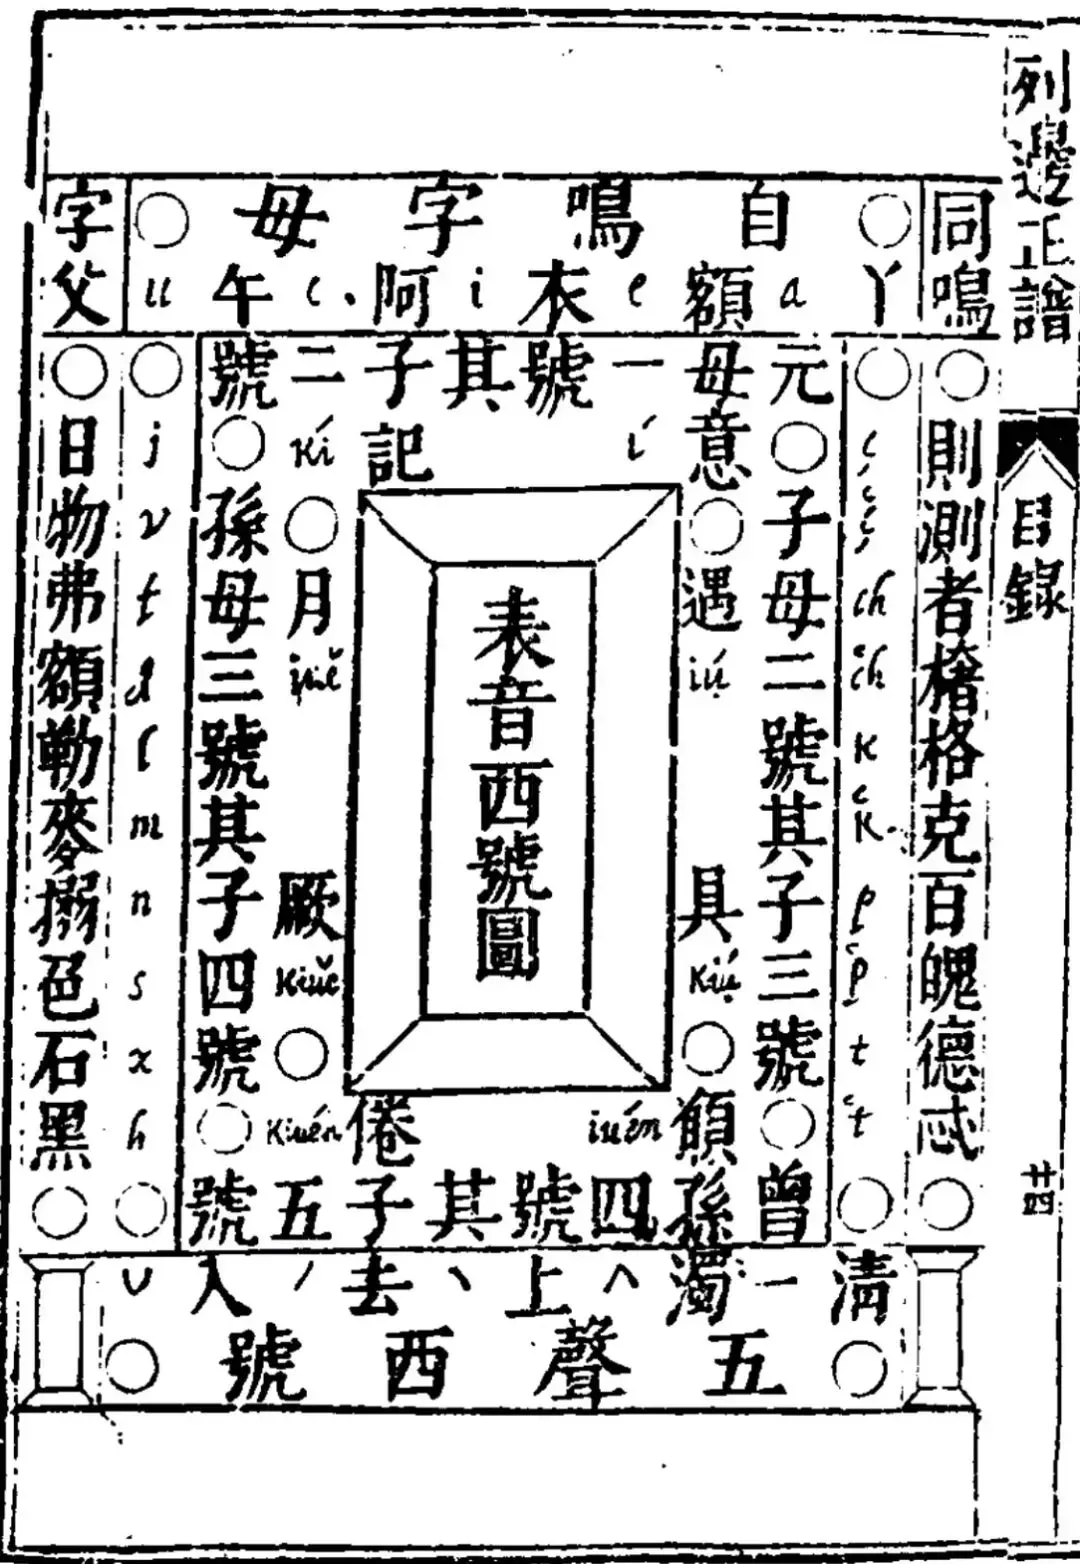 列邊正譜
目錄
廿四
自鳴字母
丫 a 額 e 衣 i 阿 午 u
同鳴
字父
則測者撦格克百魄德忒
ç 'ç ch 'ch K 'K p 'p t 't
j v f g l m n s x h
日物弗額勒麥搦色石黑
元母一號其子二號
子母二號其子三號
孫母三號其子四號
曾孫四號其子五號
意 í 記 Kí
遇 iú 具 Kiú
月 iuě 厥 Kiuě
iuén 倦 Kiuén
表音西號圖
清 ー 濁 ^ 上 ヽ 去 ˊ 入 ˇ
五聲西號